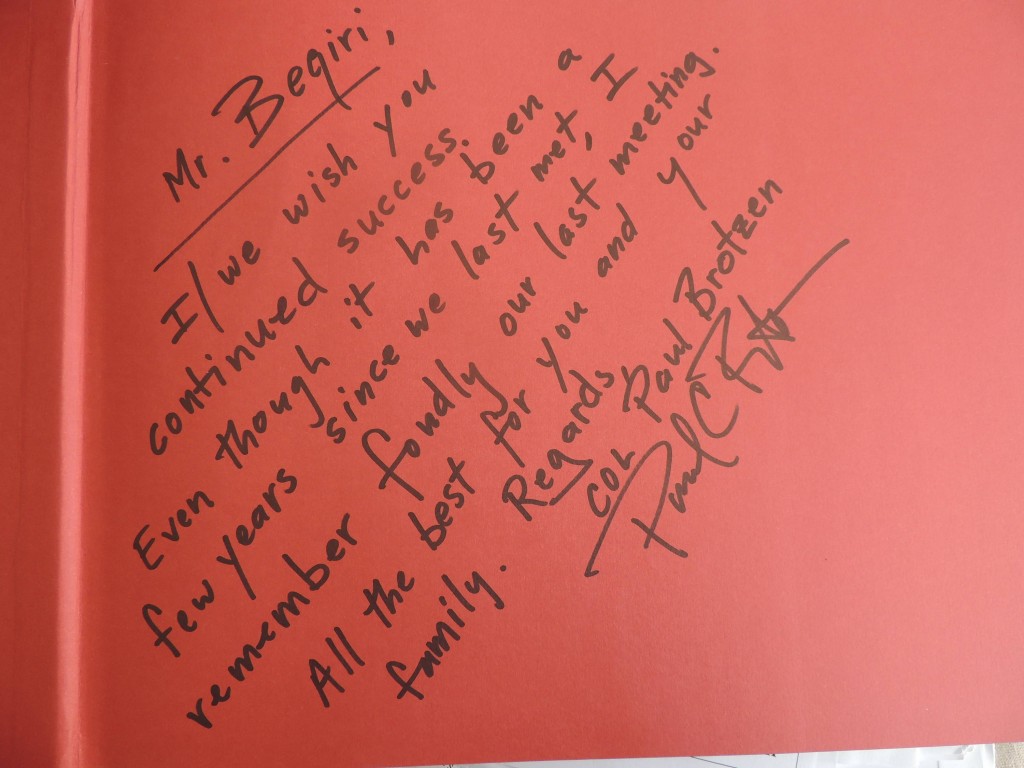 Mr. Beqiri,
I/we wish you
continued success.
Even though it has been a
few years since we last met, I
remember fondly our last meeting.
All the best for you and your
family.
Regards,
COL Paul Brotzen